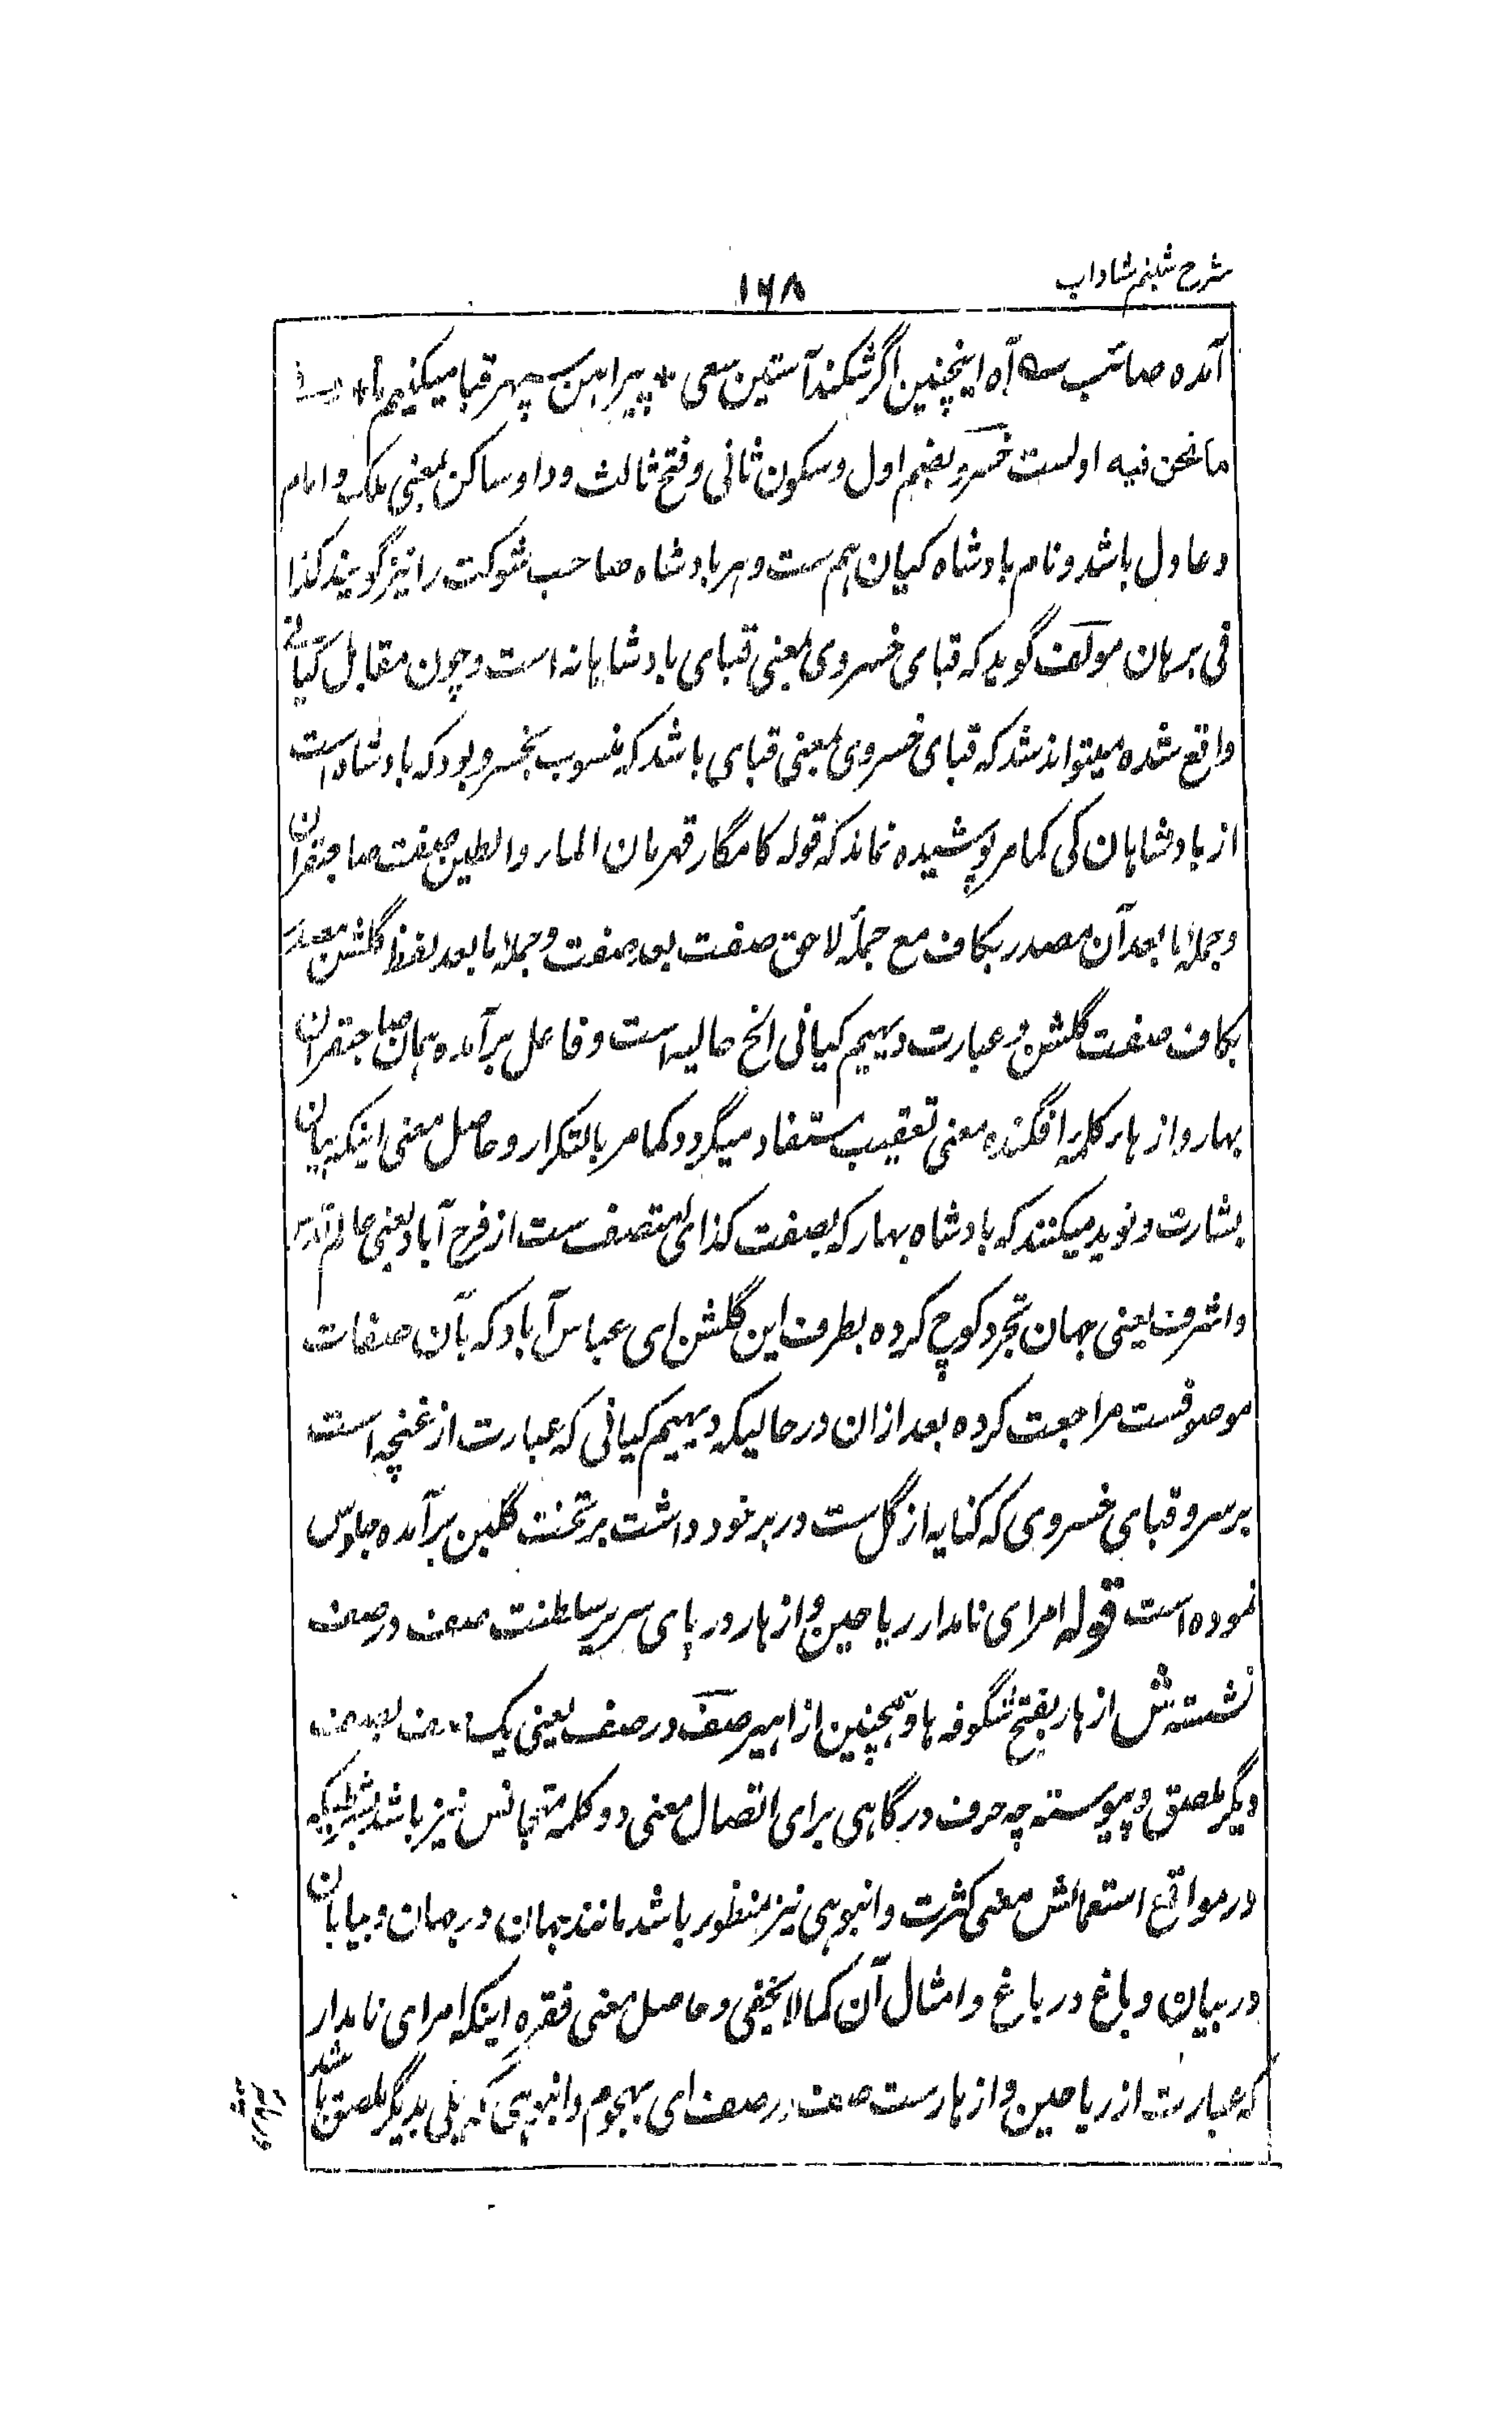 شرح شبنم شاداب
۱۶۸
آمده صائب سه آه اینچنین اگر شکند آستین سعی * پیراهن سپهر قبا میکنیم ما *
ما نحن فیه اولست خسرو بضم اول و سکون ثانی و فتح ثالث و واو ساکن بمعنی ملک و امام
و عادل باشد و نام بادشاه کیان هم ست و هر بادشاه صاحب شوکت را نیز گویند کذا
فی برهان مولف گوید که قبای خسروی بمعنی قبای بادشاهانه است و چون مقابل کیانے
واقع شده میتواند شد که قبای خسروی بمعنی قبای باشد که منسوب بخسرو بود که بادشاه است
از بادشاهان کی کما مر پوشیده نماند که قوله کامگار قهرمان الماء والطین صفت صاحبقران
و جملهٔ ما بعد آن مصدر بکاف مع جملهٔ لاحق صفت بعد صفت و جملهٔ ما بعد لفظ گلشن مصدر
بکاف صفت گلشن و عبارت دیهیم کیانی الخ حالیه است و فاعل برآمده همان صاحبقران
بهار و از هار کلمه برافگنده معنی تعقیب مستفاد میگردد کما مر بالتکرار و حاصل معنی اینکه بیان
بشارت و نوید میکنند که بادشاه بهار که بصفت کذای متصف ست از فرح آباد یعنی عالم قدس
و اشرف یعنی جهان تجرد کوچ کرده بطرف این گلشن ای عباس آباد که بآن صفات
موصوفست مراجعت کرده بعد ازان در حالیکه دیهیم کیانی که عبارت از غنچه است
بر سر و قبای خسروی که کنایه از گل ست در بر خود داشت بر تخت گلبن برآمده جلوس
نموده است قوله امرای نامدار ریاحین و ازهار در پای سریر سلطنت صف در صف
نشسته ش ازهار بفتح شگوفه ها و همچنین ازاهیر صف در صف یعنی یک صف بصف
دیگر ملصق و پیوسته چه حرف در گاهی برای اتصال معنی دو کلمه متجانس نیز باشد بشرطیکه
در مواقع استعمالش معنی کثرت و انبوهی نیز منظور باشد مانند جهان در جهان و بیابان
در بیان و باغ در باغ و امثال آن کما لا یخفی و حاصل معنی فقره اینکه امرای نامدار
که عبارت از ریاحین و ازهارست صف در صف ای بهجوم و انبوهی که یکی بدیگر ملصق باشد